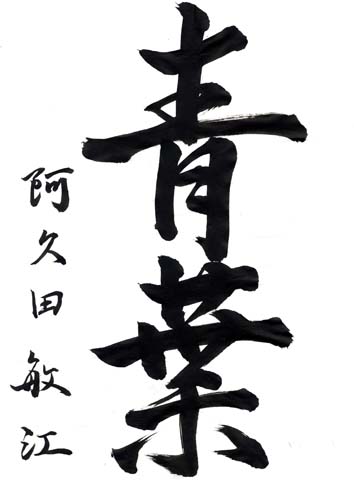 青葉
阿久田敏江